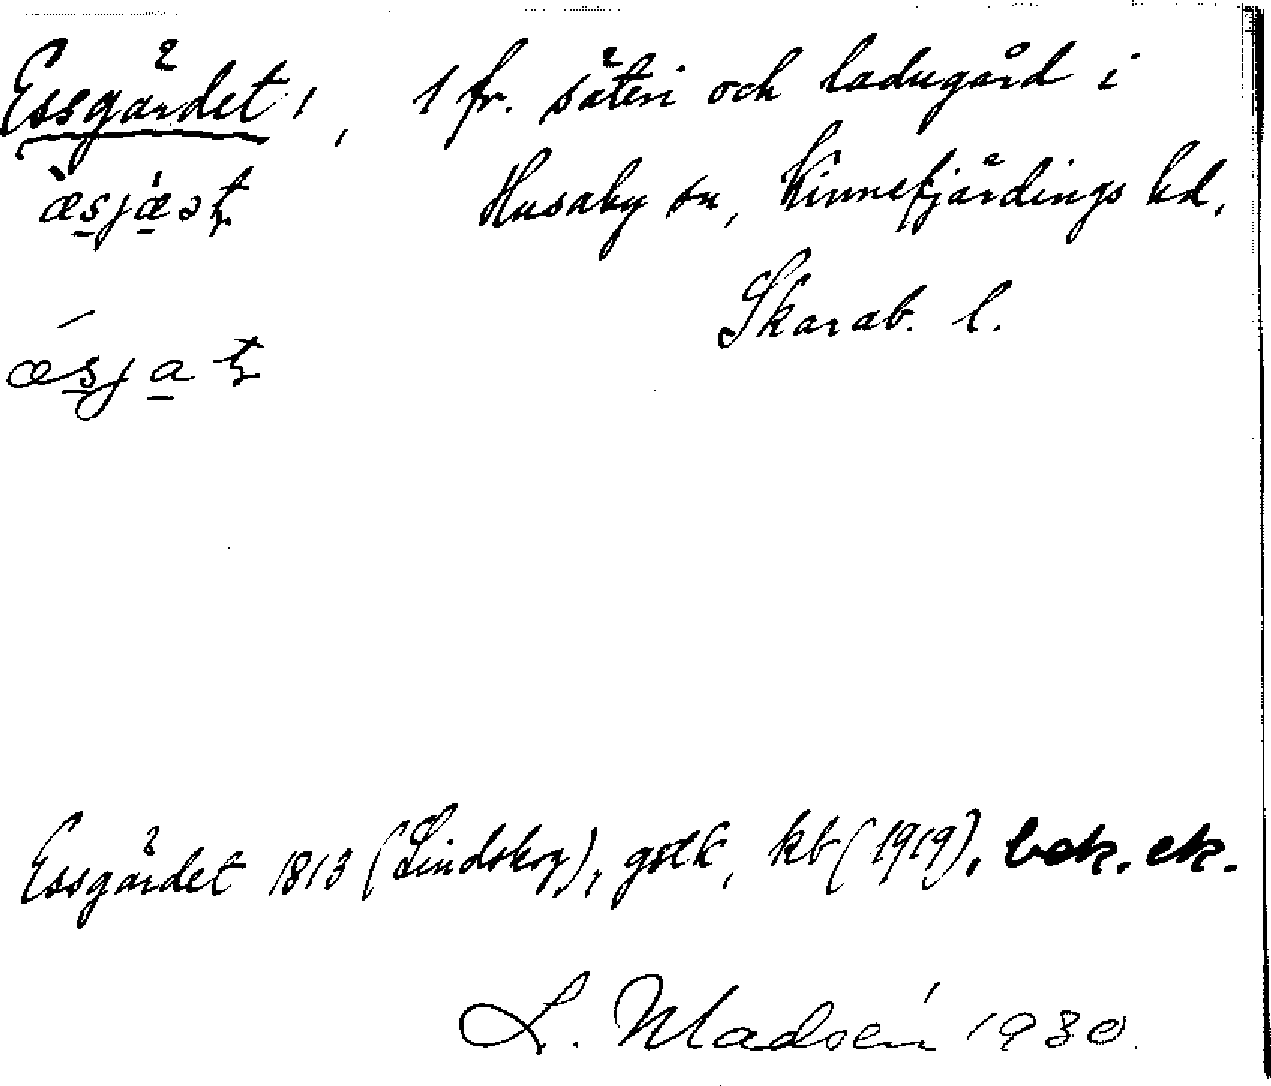 Essgärdet, 1 fr. säteri och ladugård i
Husaby sn, Kinnefjärdings hd,
Skarab. l.
Essgärdet 1813 (Lindskog), gstk, kb (1919), bok. ek.
L. Madsén 1930.